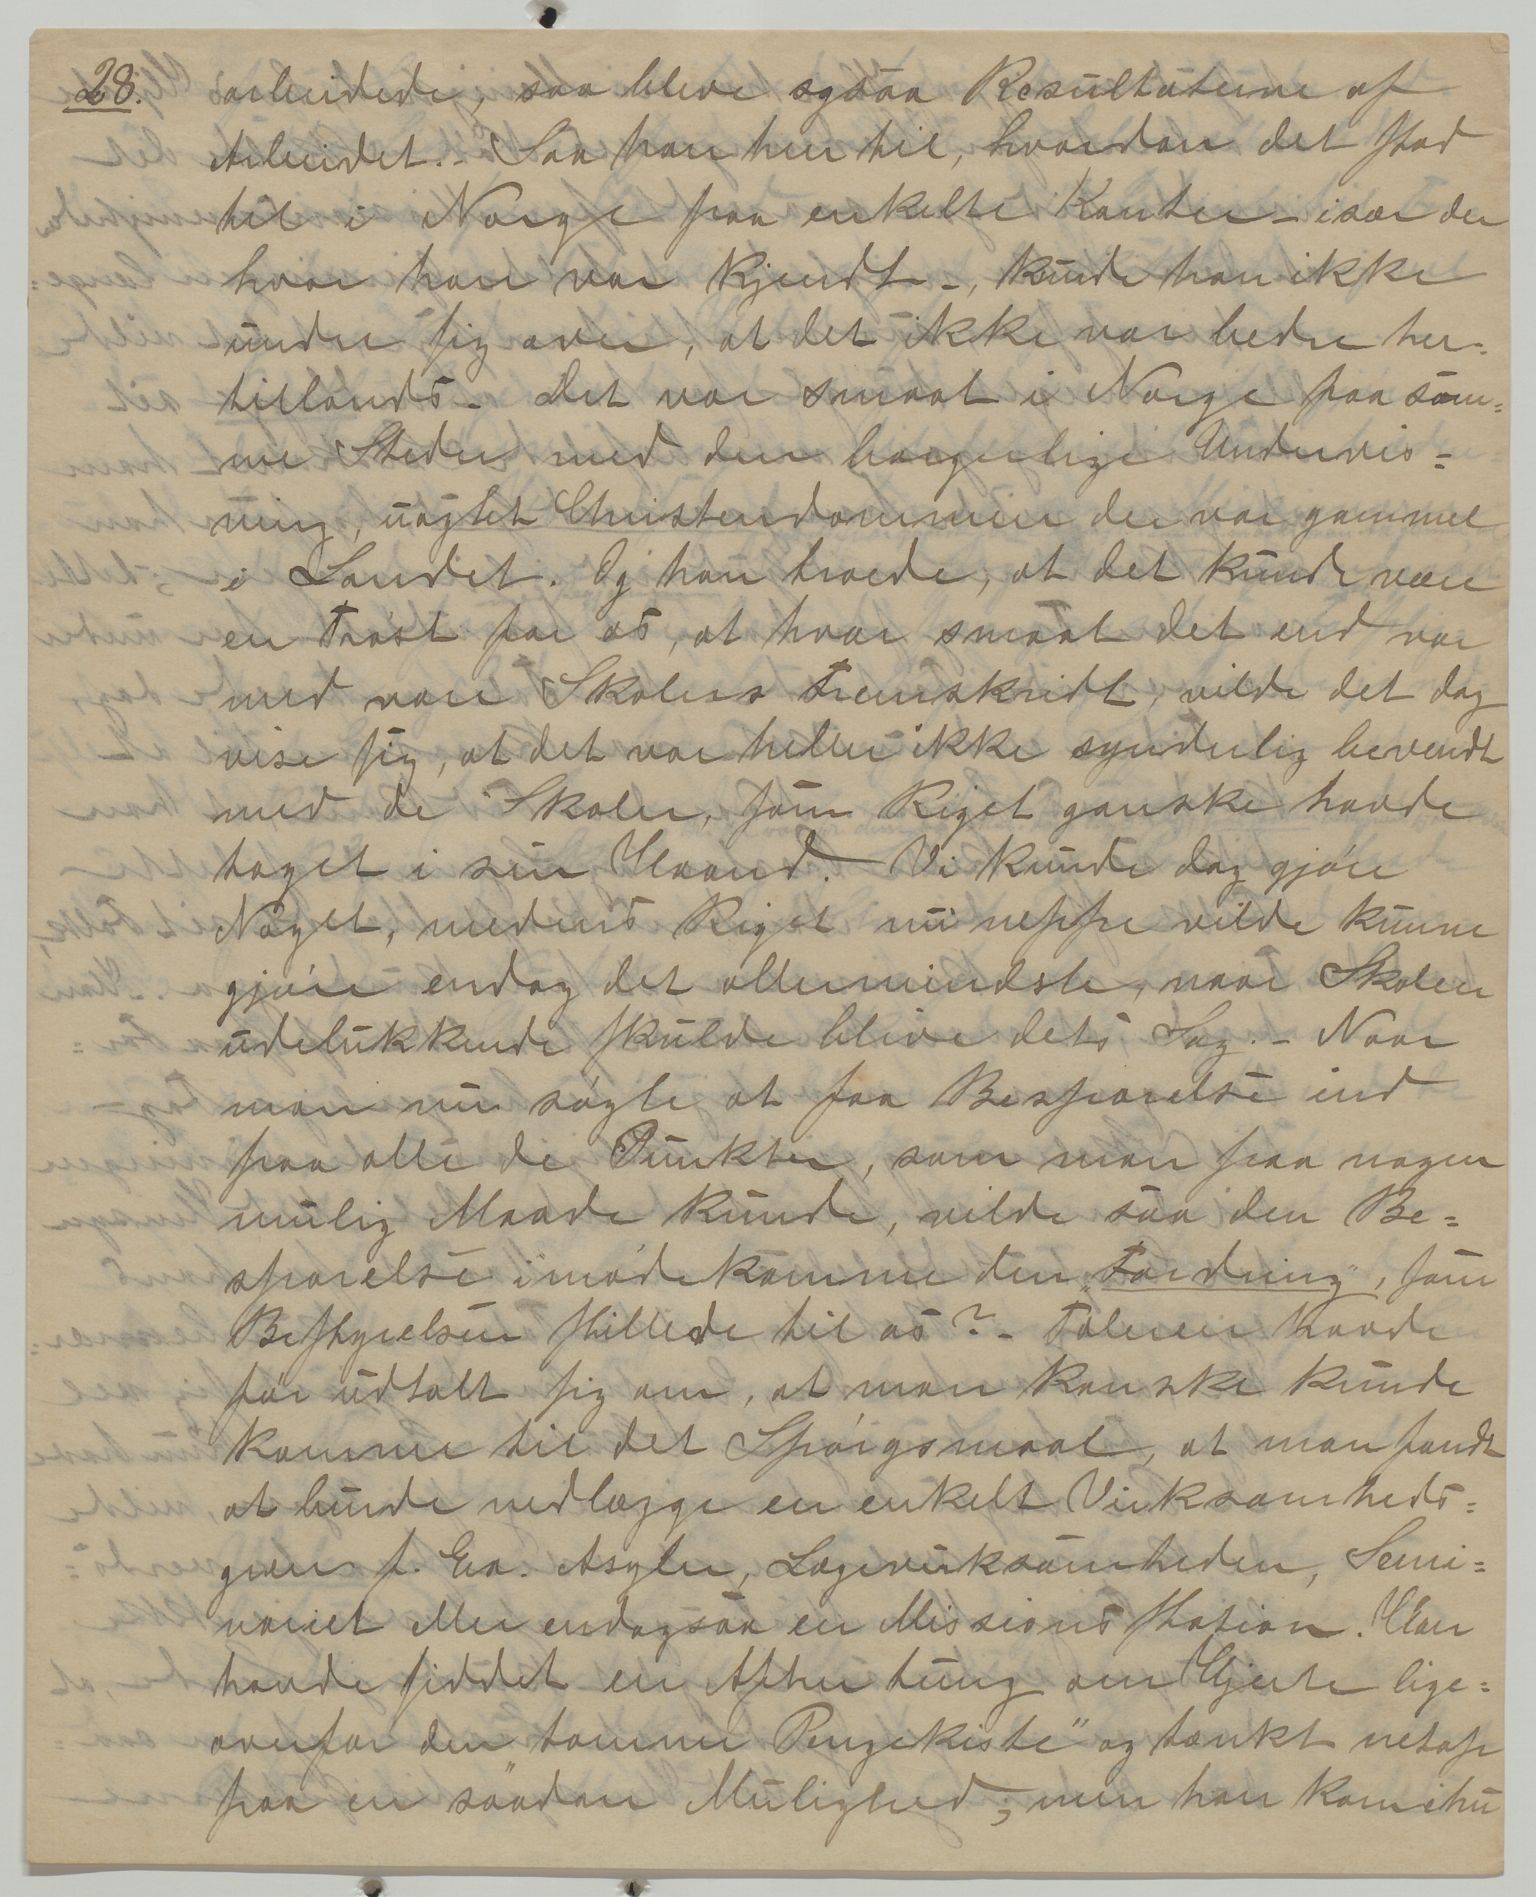 28. arbeidede, saa bleve ogsaa Resultaterne af
Arbeidet. - Saa han hen til, hvordan det stod
til i Norge paa enkelte Kanter - især der
hvor han var kjendt -, kunde han ikke
undre sig over, at det ikke var bedre her-
tillands - Det var smaat i Norge paa som-
me Steder med den borgerlige Undervis=
ning, uagtet Christendommen der var gammel
i Landet. Og han troede, at det kunde være
en Trøst for os, at hvor smaat det end var
med vore Skolers Fremskridt, vilde det dog
vise sig, at det var heller ikke synderlig bevendt
med de Skoler, som Riget ganske havde
taget i sin Haand. Vi kunde dog gjøre
Noget, medens Riget nu neppe vilde kunne
gjøre endog det allermindste, naar Skolen
udelukkende skulde blive dets Sag. - Naar
man nu søgte at faa Besparelse ind
paa alle de Punkter, som man paa nogen
mulig Maade kunde, vilde saa den Be=
sparelse imødekomme den "Fordring", som
Bestyrelsen stillede til os? - Taleren havde
før udtalt sig om, at man kanske kunde
komme til det Spørgsmaal, at man fandt
at burde nedlægge en enkelt Virksomheds=
gren f. Ex. Asyler, Lægevirksomheden, Semi=
nariet eller endogsaa en Missionsstation. Han
havde siddet en Aften tung om Hjerte lige=
overfor den "tomme Pengekiste" og tænkt netop
paa en saadan Mulighed; men han kom ihu